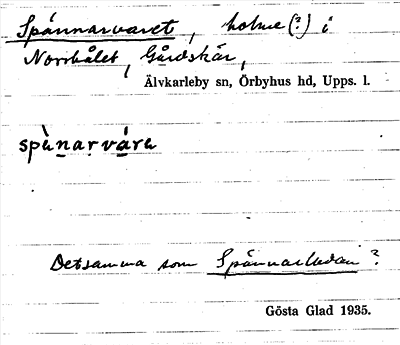 Spånnarvaret, holme(?) i
Norrhålet, Gårdskär,
Älvkarleby sn, Örbyhus hd, Upps. l.
spànarvárə
Detsamma som Spånnarladan?
Gösta Glad 1935.